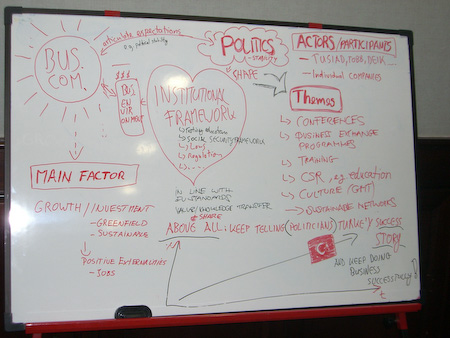 articulate expectations
e.g. political stability
BUS.
COM.
$$$
BUS.
ENVIR
ONMENT
MAIN FACTOR
GROWTH/INVESTMENT
- GREENFIELD
- SUSTAINABLE
↳ POSITIVE EXTERNALITIES
- JOBS
POLITICS
- STABILITY
SHAPE
INSTITUTIONAL
FRAMEWORK
↳ SOCIAL SECURITY FRAMEWORK
↳ Laws
↳ Regulation
↳ ....
IN LINE WITH
EU STANDARDS
VALUE/KNOWLEDGE TRANSFER
& SHARE
ACTORS/PARTICIPANTS
- TUSIAD, TOBB, DEIK
- Individual COMPANIES
Themes
↳ CONFERENCES
↳ BUSINESS EXCHANGE
PROGRAMMES
↳ TRAINING
↳ CSR, eg. education
↳ CULTURE
↳ SUSTAINABLE NETWORKS
ABOVE ALL: KEEP TELLING (POLITICIANS) TURKEY SUCCESS
STORY
AND KEEP DOING
BUSINESS
SUCCESSFULLY!
t